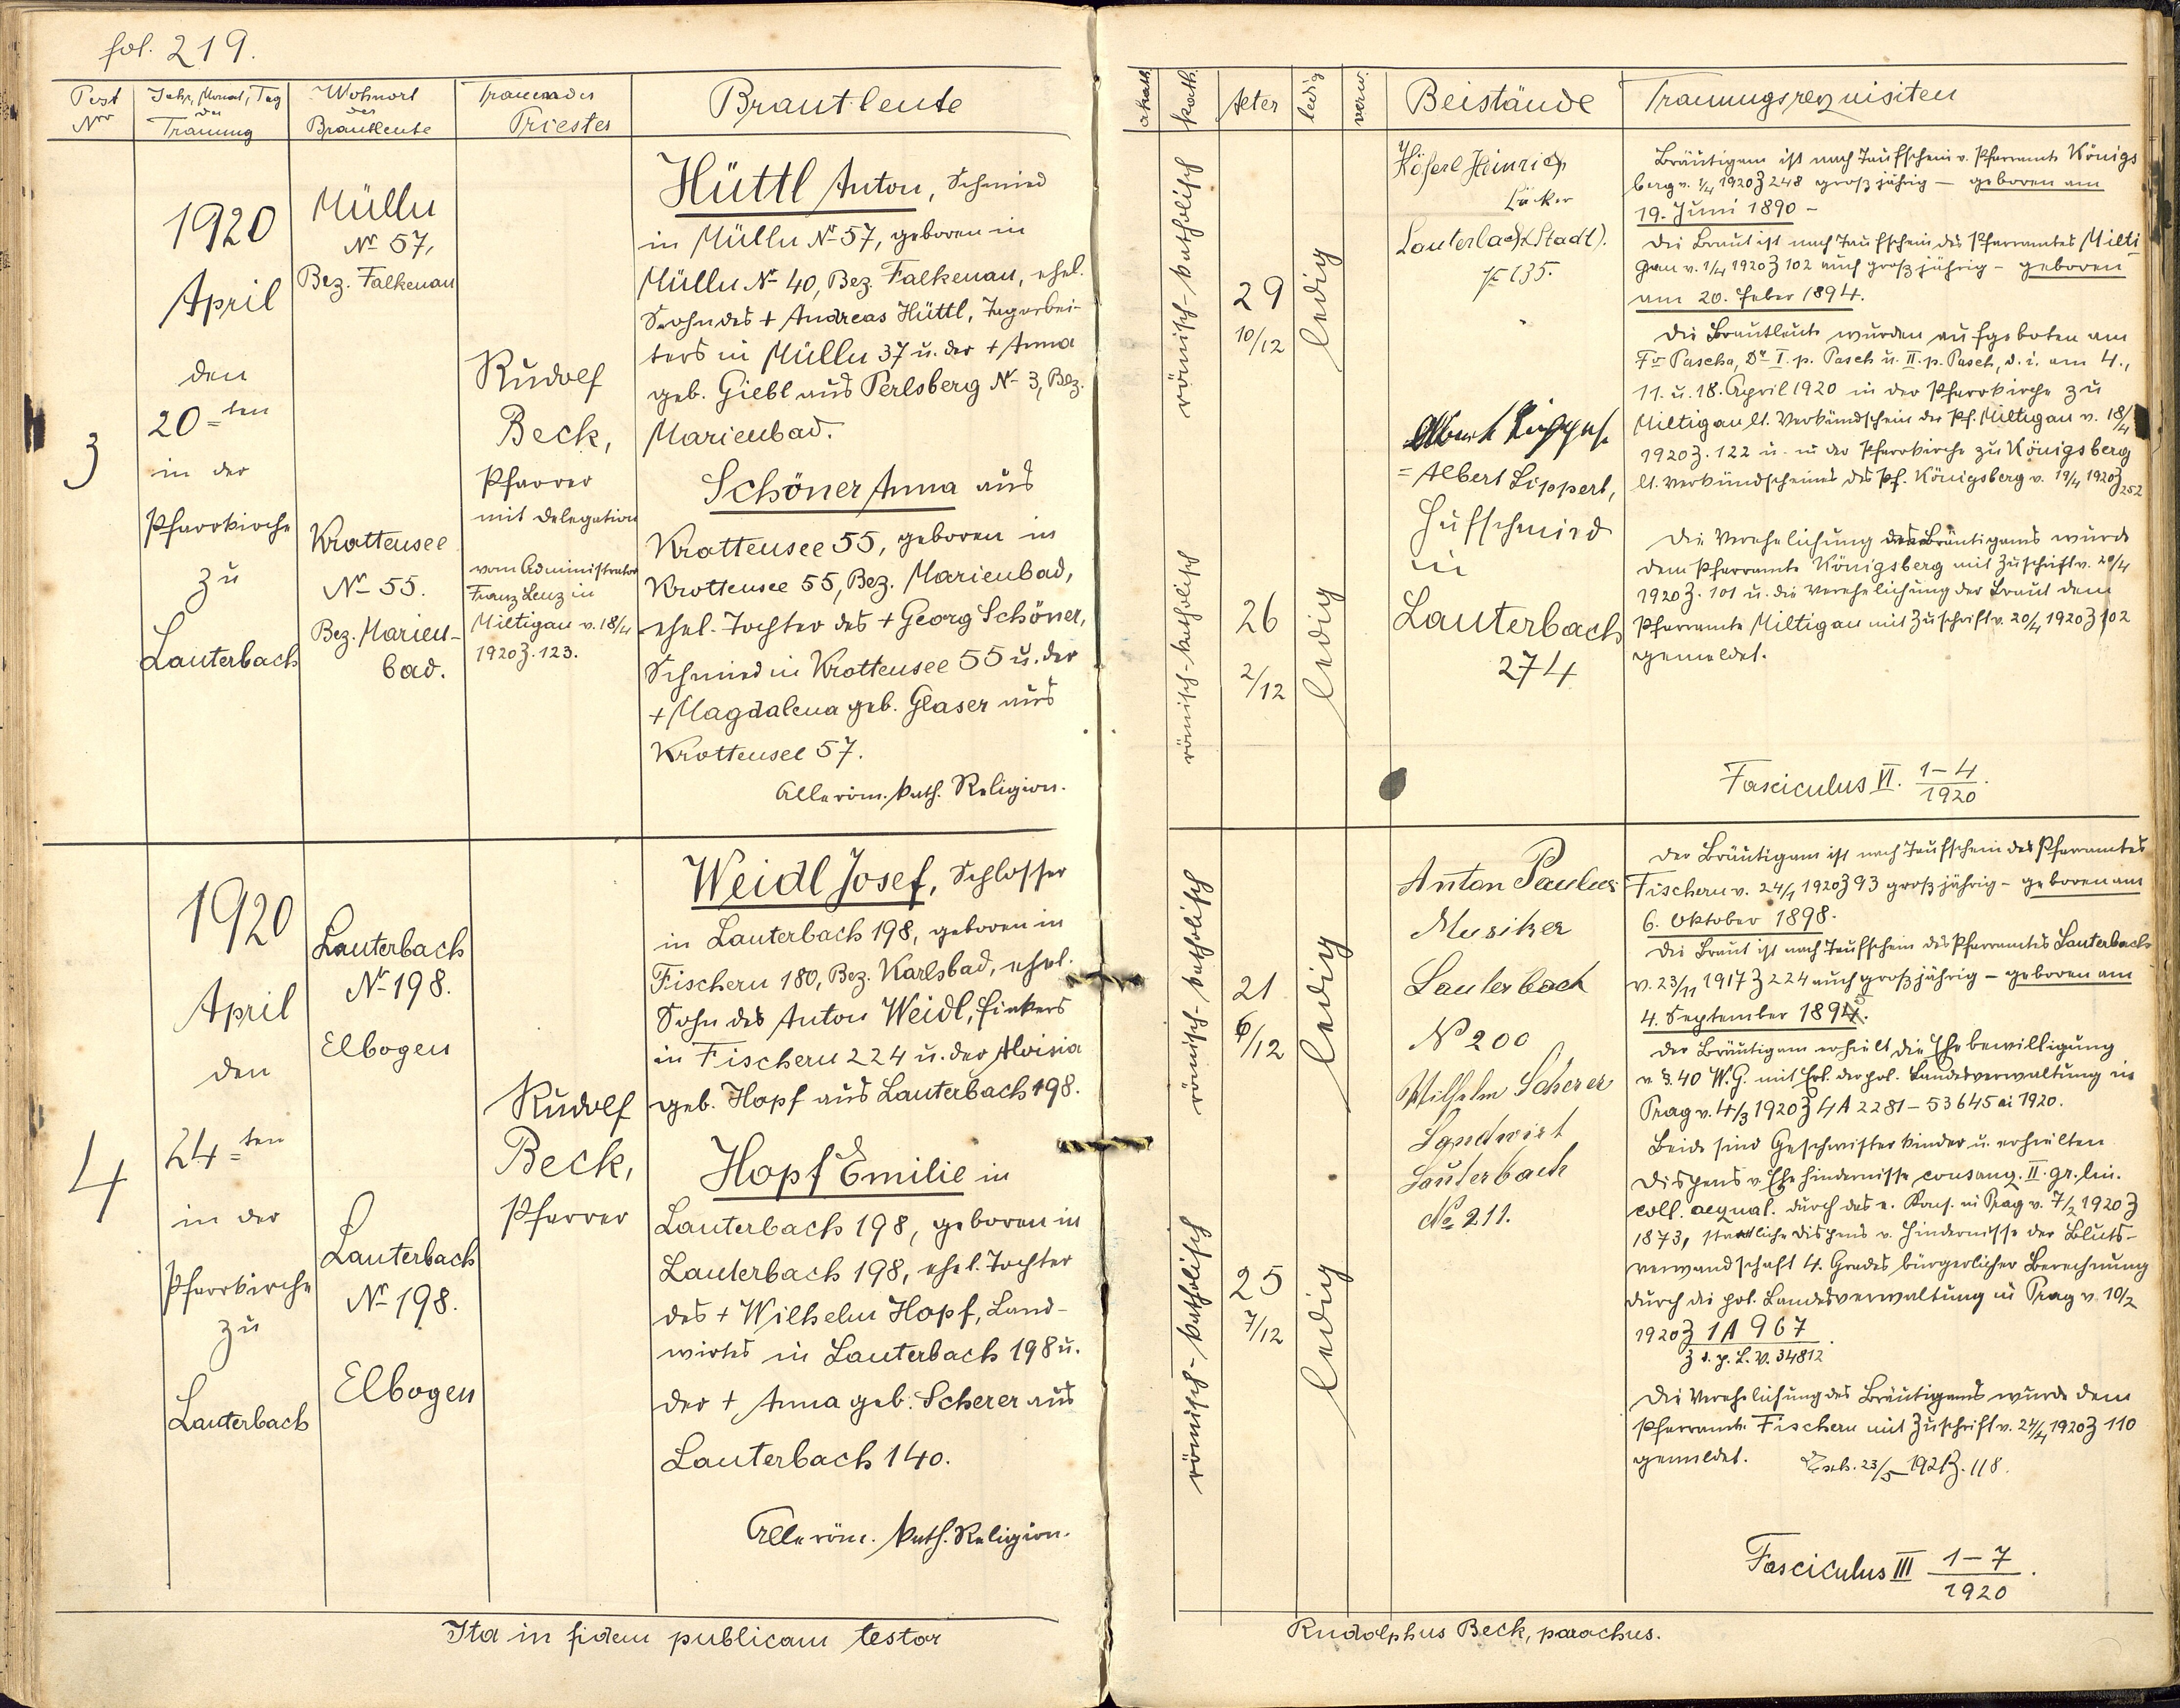 fol. 219.
Post Nro
Jahr, Monat, Tag der Trauung
Wohnort der Brautleute
Trauender Priester
Brautleute
akath.
kath.
Alter
ledig
verw.
Beistände
Trauungsrequisiten
3
1920
April
den
20ten
in der
Pfarrkirche
zu
Lauterbach
Mülln
No 57,
Bez. Falkenau
Krottensee
No 55.
Bez. Marien-
bad.
Rudolf
Beck,
Pfarrer
mit Delegation
vom Administrator
Franz Lenz in
Miltigau v. 18/4
1920 Z. 123.
Hüttl Anton, Schmied
in Mülln No 57, geboren in
Mülln No 40, Bez. Falkenau, ehel.
Sohn des + Andreas Hüttl, Tagarbei-
ters in Mülln 37 u. der + Anna
geb. Giebl aus Perlsberg No 3, Bez.
Marienbad.
Schöner Anna aus
Krottensee 55, geboren in
Krottensee 55, Bez. Marienbad,
ehel. Tochter des + Georg Schöner,
Schmied in Krottensee 55 u. der
+ Magdalena geb. Glaser aus
Krottensee 57.
Alle röm. kath. Religion.
römisch-katholisch
29
10/12
ledig
römisch-katholisch
26
2/12
ledig
Höferl Heinrich
Bäcker
Lauterbach (Stadt).
No 135.
Albert Lippert
= Albert Lippert,
Hufschmied
in
Lauterbach
274
Bräutigam ist nach Taufschein v. Pfarramte Königs
berg v. 1/4 1920 Z 248 großjährig – geboren am
19. Juni 1890 –
Die Braut ist nach Taufschein des Pfarramtes Milti
gau v. 1/4 1920 Z 102 auch großjährig – geboren
am 20. Feber 1894.
Die Brautleute wurden aufgeboten am
Fo Pascha, Do I. p. Pasch u. II. p. Pasch, d. i. am 4.,
11. u. 18. April 1920 in der Pfarrkirche zu
Miltigau lt. Verkündschein des Pf. Miltigau v. 18/4
1920 Z. 122 u. in der Pfarrkirche zu Königsberg
lt. Verkündscheines des Pf. Königsberg v. 19/4 1920 Z 252
Die Verehelichung des Bräutigams wurde
dem Pfarramte Königsberg mit Zuschrift v. 20/4
1920 Z. 101 u. die Verehelichung der Braut dem
Pfarramte Miltigau mit Zuschrift v. 20/4 1920 Z 102
gemeldet.
Fasciculus VI. 1–4/1920.
4
1920
April
den
24ten
in der
Pfarrkirche
zu
Lauterbach
Lauterbach
No 198.
Elbogen
Lauterbach
No 198.
Elbogen
Rudolf
Beck,
Pfarrer
Weidl Josef, Schlosser
in Lauterbach 198, geboren in
Fischern 180, Bez. Karlsbad, ehel.
Sohn des Anton Weidl, Fiakers
in Fischern 224 u. der Aloisia
geb. Hopf aus Lauterbach 198.
Hopf Emilie in
Lauterbach 198, geboren in
Lauterbach 198, ehel. Tochter
des + Wilhelm Hopf, Land-
wirtes in Lauterbach 198 u.
der + Anna geb. Scherer aus
Lauterbach 140.
Alle röm. kath. Religion.
römisch-katholisch
21
6/12
ledig
römisch-katholisch
25
7/12
ledig
Anton Paulus
Musiker
Lauterbach
No 200
Wilhelm Scherer
Landwirt
Lauterbach
No 211.
Der Bräutigam ist nach Taufschein des Pfarramtes
Fischern v. 24/4 1920 Z 93 großjährig – geboren am
6. Oktober 1898.
Die Braut ist nach Taufschein des Pfarramtes Lauterbach
v. 23/11 1917 Z 224 auch großjährig – geboren am
4. September 1894.
Der Bräutigam erhielt die Ehebewilligung
v. §. 40 W.G. mit Erl. der pol. Landesverwaltung in
Prag v. 4/3 1920 Z 4A 2281 – 53645 ai 1920.
Beide sind Geschwisterkinder u. erhielten
Dispens v. Ehehindernisse consang. II. gr. lin.
coll. aequal. durch das e. Kons. in Prag v. 7/2 1920 Z
1873, staatliche Dispens v. Hindernisse der Bluts-
verwandschaft 4. Grades, bürgerlicher Berechnung
durch die pol. Landesverwaltung in Prag v. 10/2
1920 Z 1A 967
Z d. p. L. V. 34812.
Die Verehelichung des Bräutigams wurde dem
Pfarramte Fischern mit Zuschrift v. 24/4 1920 Z 110
gemeldet. 23/5 1921 Z. 118.
Fasciculus III 1–7/1920.
Ita in fidem publicam testor
Rudolphus Beck, parochus.